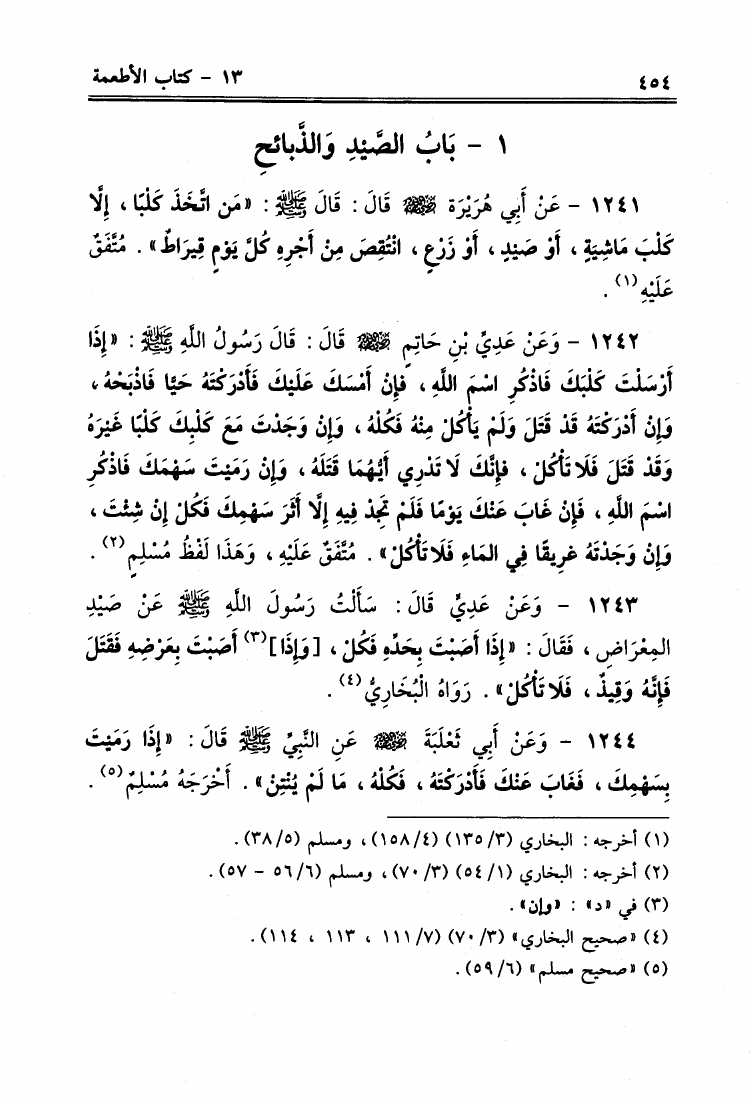 ٤٥٤ ١٣ - كتاب الأطعمة
١ - بَابُ الصَّيْدِ وَالذَّبائحِ
١٢٤١ - عَنْ أَبِي هُرَيْرَةَ ﵁ قَالَ: قَالَ ﷺ: «مَن اتَّخَذَ كَلْبًا، إِلَّا
كَلْبَ مَاشِيَةٍ، أَوْ صَيْدٍ، أَوْ زَرْعٍ، انْتُقِصَ مِنْ أَجْرِهِ كُلَّ يَوْمٍ قِيرَاطٌ». مُتَّفَقٌ
عَلَيْهِ(١).
١٢٤٢ - وَعَنْ عَدِيِّ بْنِ حَاتِمٍ ﵁ قَالَ: قَالَ رَسُولُ اللَّهِ ﷺ: «إِذَا
أَرْسَلْتَ كَلْبَكَ فَاذْكُرِ اسْمَ اللَّهِ، فَإِنْ أَمْسَكَ عَلَيْكَ فَأَدْرَكْتَهُ حَيًّا فَاذْبَحْهُ،
وَإِنْ أَدْرَكْتَهُ قَدْ قَتَلَ وَلَمْ يَأْكُلْ مِنْهُ فَكُلْهُ، وَإِنْ وَجَدْتَ مَعَ كَلْبِكَ كَلْبًا غَيْرَهُ
وَقَدْ قَتَلَ فَلَا تَأْكُلْ، فَإِنَّكَ لَا تَدْرِي أَيُّهُمَا قَتَلَهُ، وَإِنْ رَمَيْتَ سَهْمَكَ فَاذْكُرِ
اسْمَ اللَّهِ، فَإِنْ غَابَ عَنْكَ يَوْمًا فَلَمْ تَجِدْ فِيهِ إِلَّا أَثَرَ سَهْمِكَ فَكُلْ إِنْ شِئْتَ،
وَإِنْ وَجَدْتَهُ غَرِيقًا فِي المَاءِ فَلَا تَأْكُلْ». مُتَّفَقٌ عَلَيْهِ، وَهَذَا لَفْظُ مُسْلِمٍ(٢).
١٢٤٣ - وَعَنْ عَدِيٍّ قَالَ: سَأَلْتُ رَسُولَ اللَّهِ ﷺ عَنْ صَيْدِ
المِعْرَاضِ، فَقَالَ: «إِذَا أَصَبْتَ بِحَدِّهِ فَكُلْ، [وَإِذَا](٣) أَصَبْتَ بِعَرْضِهِ فَقَتَلَ
فَإِنَّهُ وَقِيذٌ، فَلَا تَأْكُلْ». رَوَاهُ الْبُخَارِيُّ(٤).
١٢٤٤ - وَعَنْ أَبِي ثَعْلَبَةَ ﵁ عَنِ النَّبِيِّ ﷺ قَالَ: «إِذَا رَمَيْتَ
بِسَهْمِكَ، فَغَابَ عَنْكَ فَأَدْرَكْتَهُ، فَكُلْهُ، مَا لَمْ يُنْتِنْ». أَخْرَجَهُ مُسْلِمٌ(٥).
(١) أخرجه: البخاري (١٣٥/٣) (١٥٨/٤)، ومسلم (٣٨/٥).
(٢) أخرجه: البخاري (٥٤/١) (٧٠/٣)، ومسلم (٥٦/٦ - ٥٧).
(٣) في «د»: «وإن».
(٤) «صحيح البخاري» (٧٠/٣) (١١١/٧، ١١٣، ١١٤).
(٥) «صحيح مسلم» (٥٩/٦).